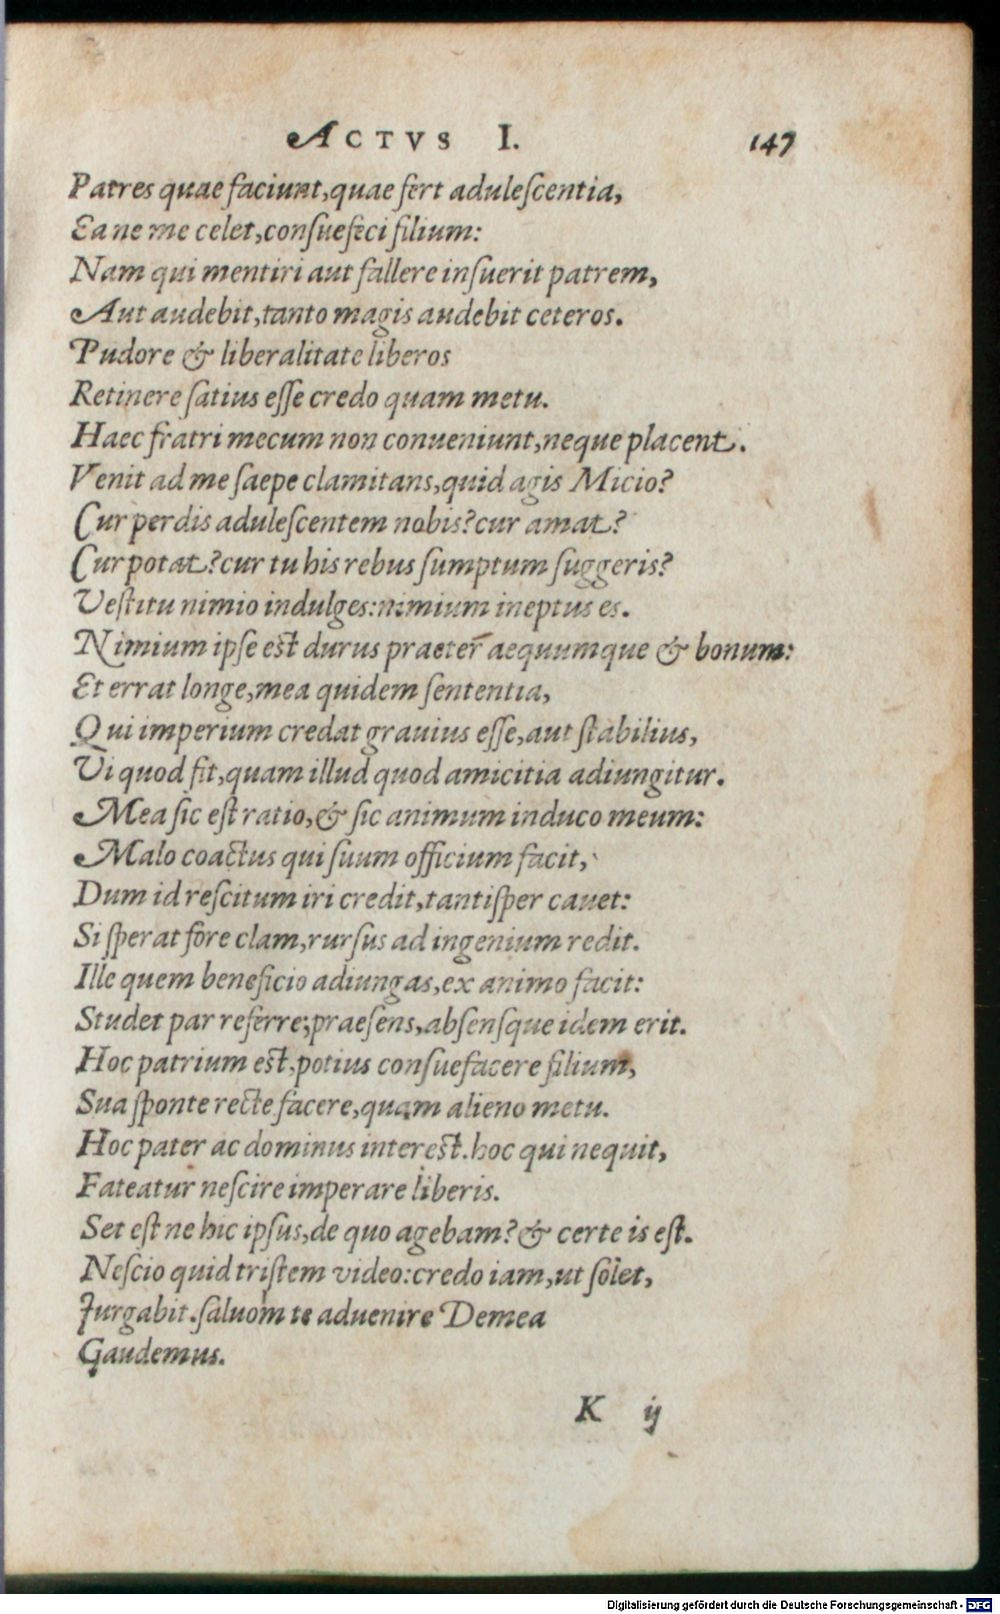 ACTVS I. 147
Patres quae faciunt, quae fert adulescentia,
Ea ne me celet, consuefeci filium:
Nam qui mentiri aut fallere insuerit patrem,
Aut audebit, tanto magis audebit ceteros.
Pudore & liberalitate liberos
Retinere satius esse credo quam metu.
Haec fratri mecum non conueniunt, neque placent.
Venit ad me saepe clamitans, quid agis Micio?
Cur perdis adulescentem nobis? cur amat?
Cur potat? cur tu his rebus sumptum suggeris?
Vestitu nimio indulges: nimium ineptus es.
Nimium ipse est durus praeter aequumque & bonum:
Et errat longe, mea quidem sententia,
Qui imperium credat grauius esse, aut stabilius,
Vi quod fit, quam illud quod amicitia adiungitur.
Mea sic est ratio, & sic animum induco meum:
Malo coactus qui suum officium facit,
Dum id rescitum iri credit, tantisper cauet:
Si sperat fore clam, rursus ad ingenium redit.
Ille quem beneficio adiungas, ex animo facit:
Studet par referre; praesens, absensque idem erit.
Hoc patrium est, potius consuefacere filium,
Sua sponte recte facere, quam alieno metu.
Hoc pater ac dominus interest. hoc qui nequit,
Fateatur nescire imperare liberis.
Set est ne hic ipsus, de quo agebam? & certe is est.
Nescio quid tristem video: credo iam, ut solet,
Jurgabit. saluom te aduenire Demea
Gaudemus.
K ij
Digitalisierung gefördert durch die Deutsche Forschungsgemeinschaft - DFG